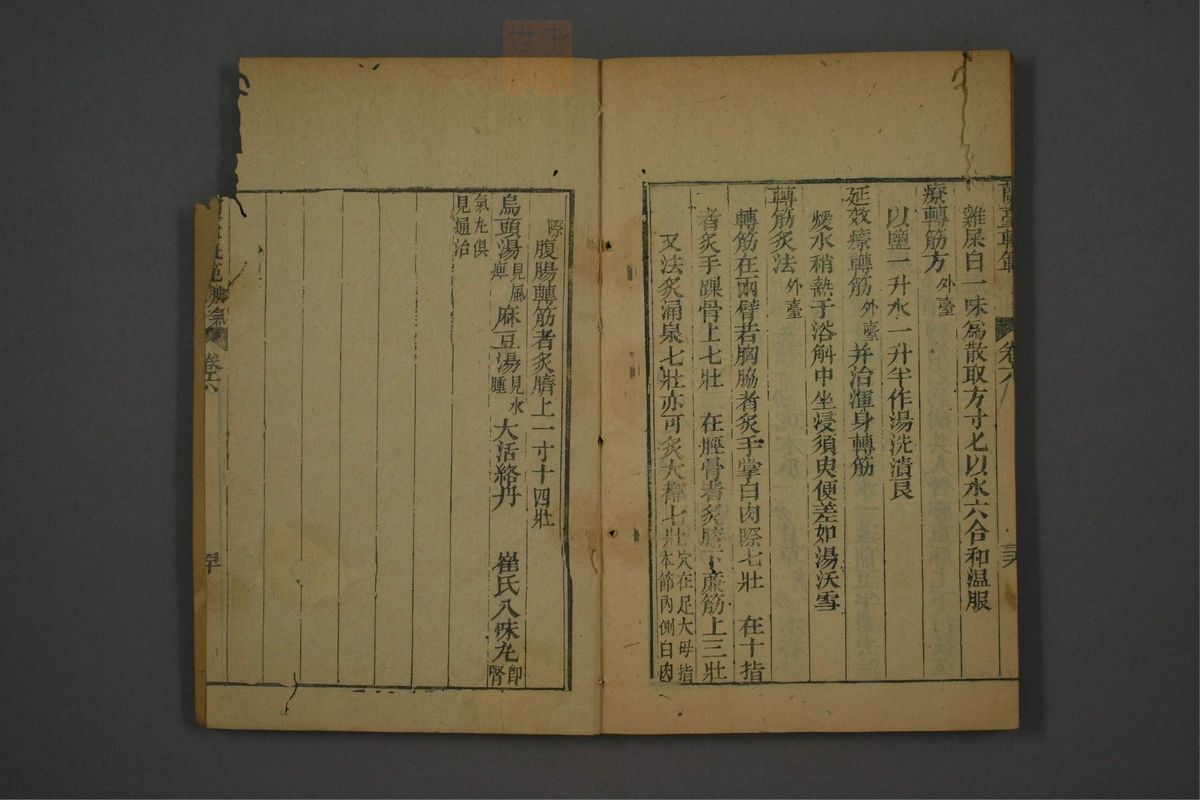 蘭臺軌範 卷六 三六
雞屎白一味為散取方寸匕以水六合和温服
療轉筋方外臺
以鹽一升水一升半作湯洗漬良
延效療轉筋外臺并治渾身轉筋
煖水稍熱于浴斛中坐浸須臾便差如湯沃雪
轉筋灸法外臺
轉筋在兩臂若胸脇者灸手掌白肉際七壯 在十指
者灸手踝骨上七壯 在脛骨者灸膝下廉筋上三壯
又法灸涌泉七壯亦可灸大都七壯穴在足大母指本節内側白肉
際 腹腸轉筋者灸臍上一寸十四壯
烏頭湯見風痺 麻豆湯見水腫 大活絡丹 崔氏八味丸即腎
氣丸俱見通治
範 卷六